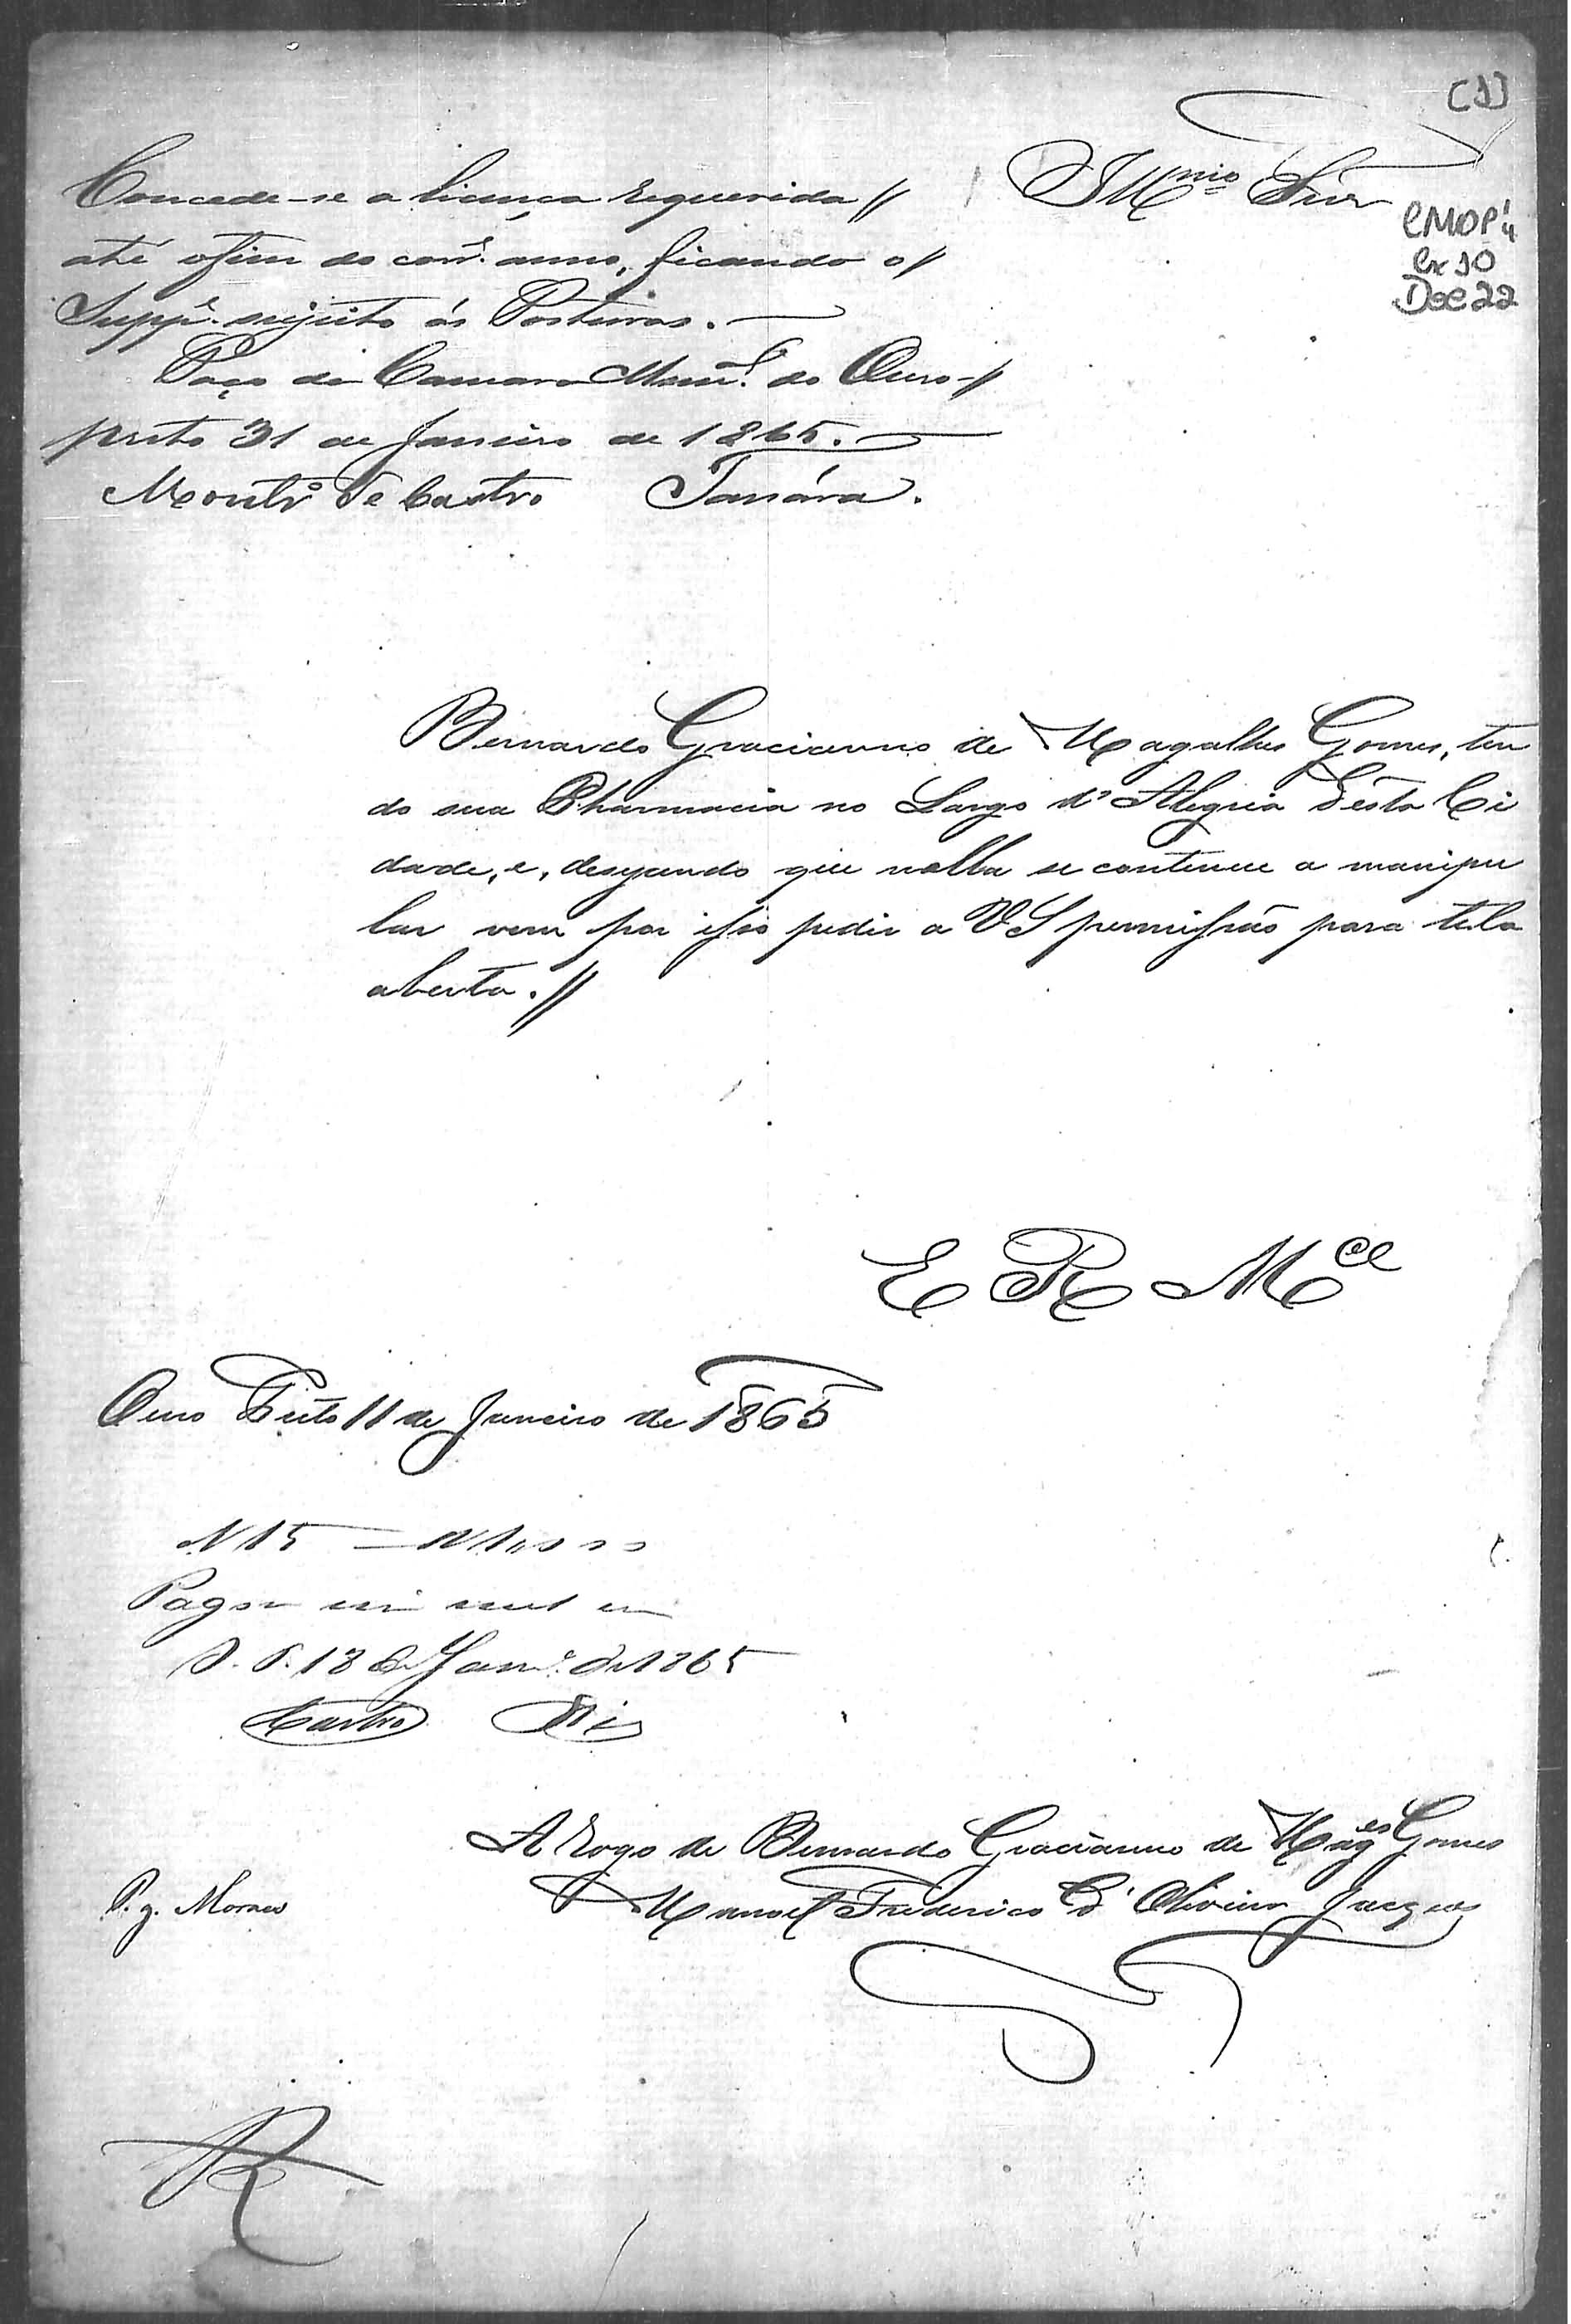 [1]
Illmo Snr
CMOP
Cx 10
Doc 22
Concede-se a licença requerida //
até ofim do corre. anno, ficando o/
Suppe. sujeito ás Posturas.
Paço da Camara Munal. do Ouro-//
preto 31 de Janeiro de 1865.
Monto. de Castro
Bernardo Gracianno de Magalhes Gomes, ten
do sua Pharmacia no Largo d'Alegria d'ésta Ci
dade, e, desejando que nella se continue a manipu
lar vem por isso pedir a VS permissão para tela
aberta.//
E R Mce
Ouro Preto 11 de Janeiro de 1865
N 15
Pagou mil reis
O. P. 18 de Janro. de 1865
Castro
A rogo de Bernardo Gracianno de Mages Gomes
Manoel Frederico d'Oliveira Jacques
P. g. Moraes
R